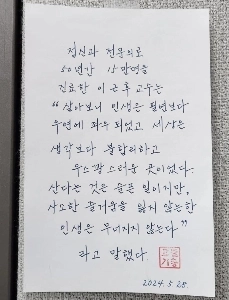 정신과 전문의로
50년간 15만명을
진료한 이근후 교수는
"살아보니 인생은 필연보다
우연에 좌우 되었고 세상은
생각보다 불합리하고
우스꽝스러운 곳이었다.
산다는 것은 슬픈 일이지만,
사소한 즐거움을 잃지 않는한
인생은 무너지지 않는다"
라고 말했다.
2024. 5. 28